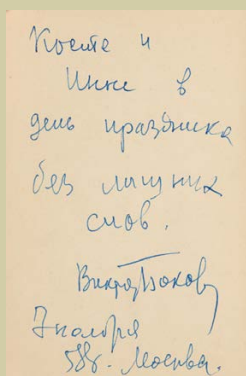 Косте и
Инне в
день праздника
без лишних
слов.
Виктор Боков
7 ноября
58г. Москва.